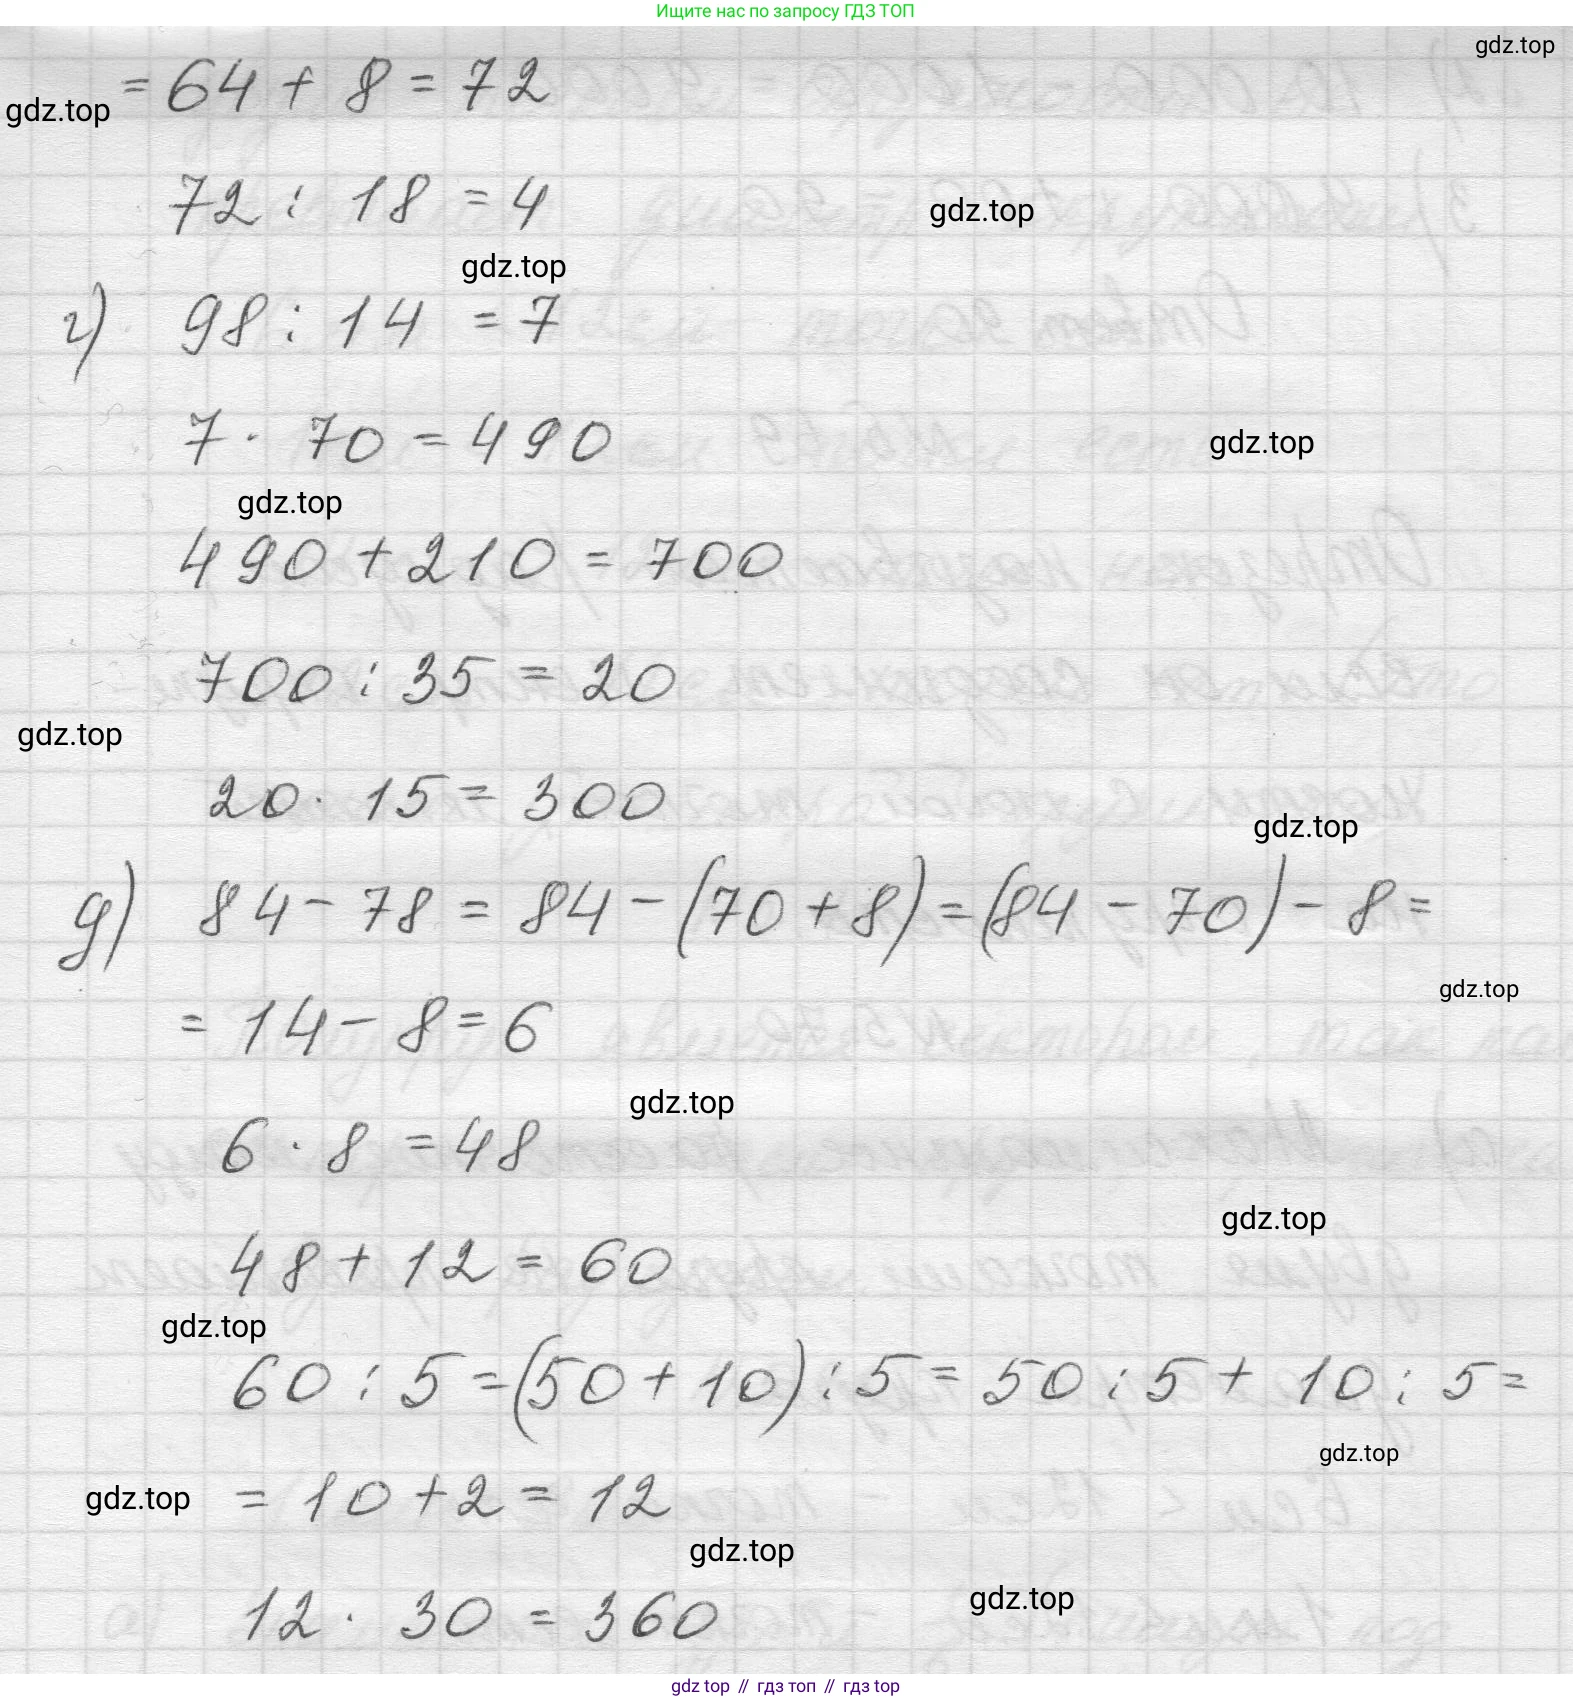 Ищите нас по запросу ГДЗ ТОП
gdz.top
= 64 + 8 = 72
gdz.top
72 : 18 = 4
gdz.top
gdz.top
г) 98 : 14 = 7
7 · 70 = 490
gdz.top
gdz.top
490 + 210 = 700
700 : 35 = 20
gdz.top
20 · 15 = 300
gdz.top
д) 84 - 78 = 84 - (70 + 8) = (84 - 70) - 8 =
gdz.top
= 14 - 8 = 6
gdz.top
6 · 8 = 48
gdz.top
48 + 12 = 60
gdz.top
60 : 5 = (50 + 10) : 5 = 50 : 5 + 10 : 5 =
gdz.top
= 10 + 2 = 12
gdz.top
gdz.top
gdz.top
12 · 30 = 360
gdz top // гдз топ // гдз top